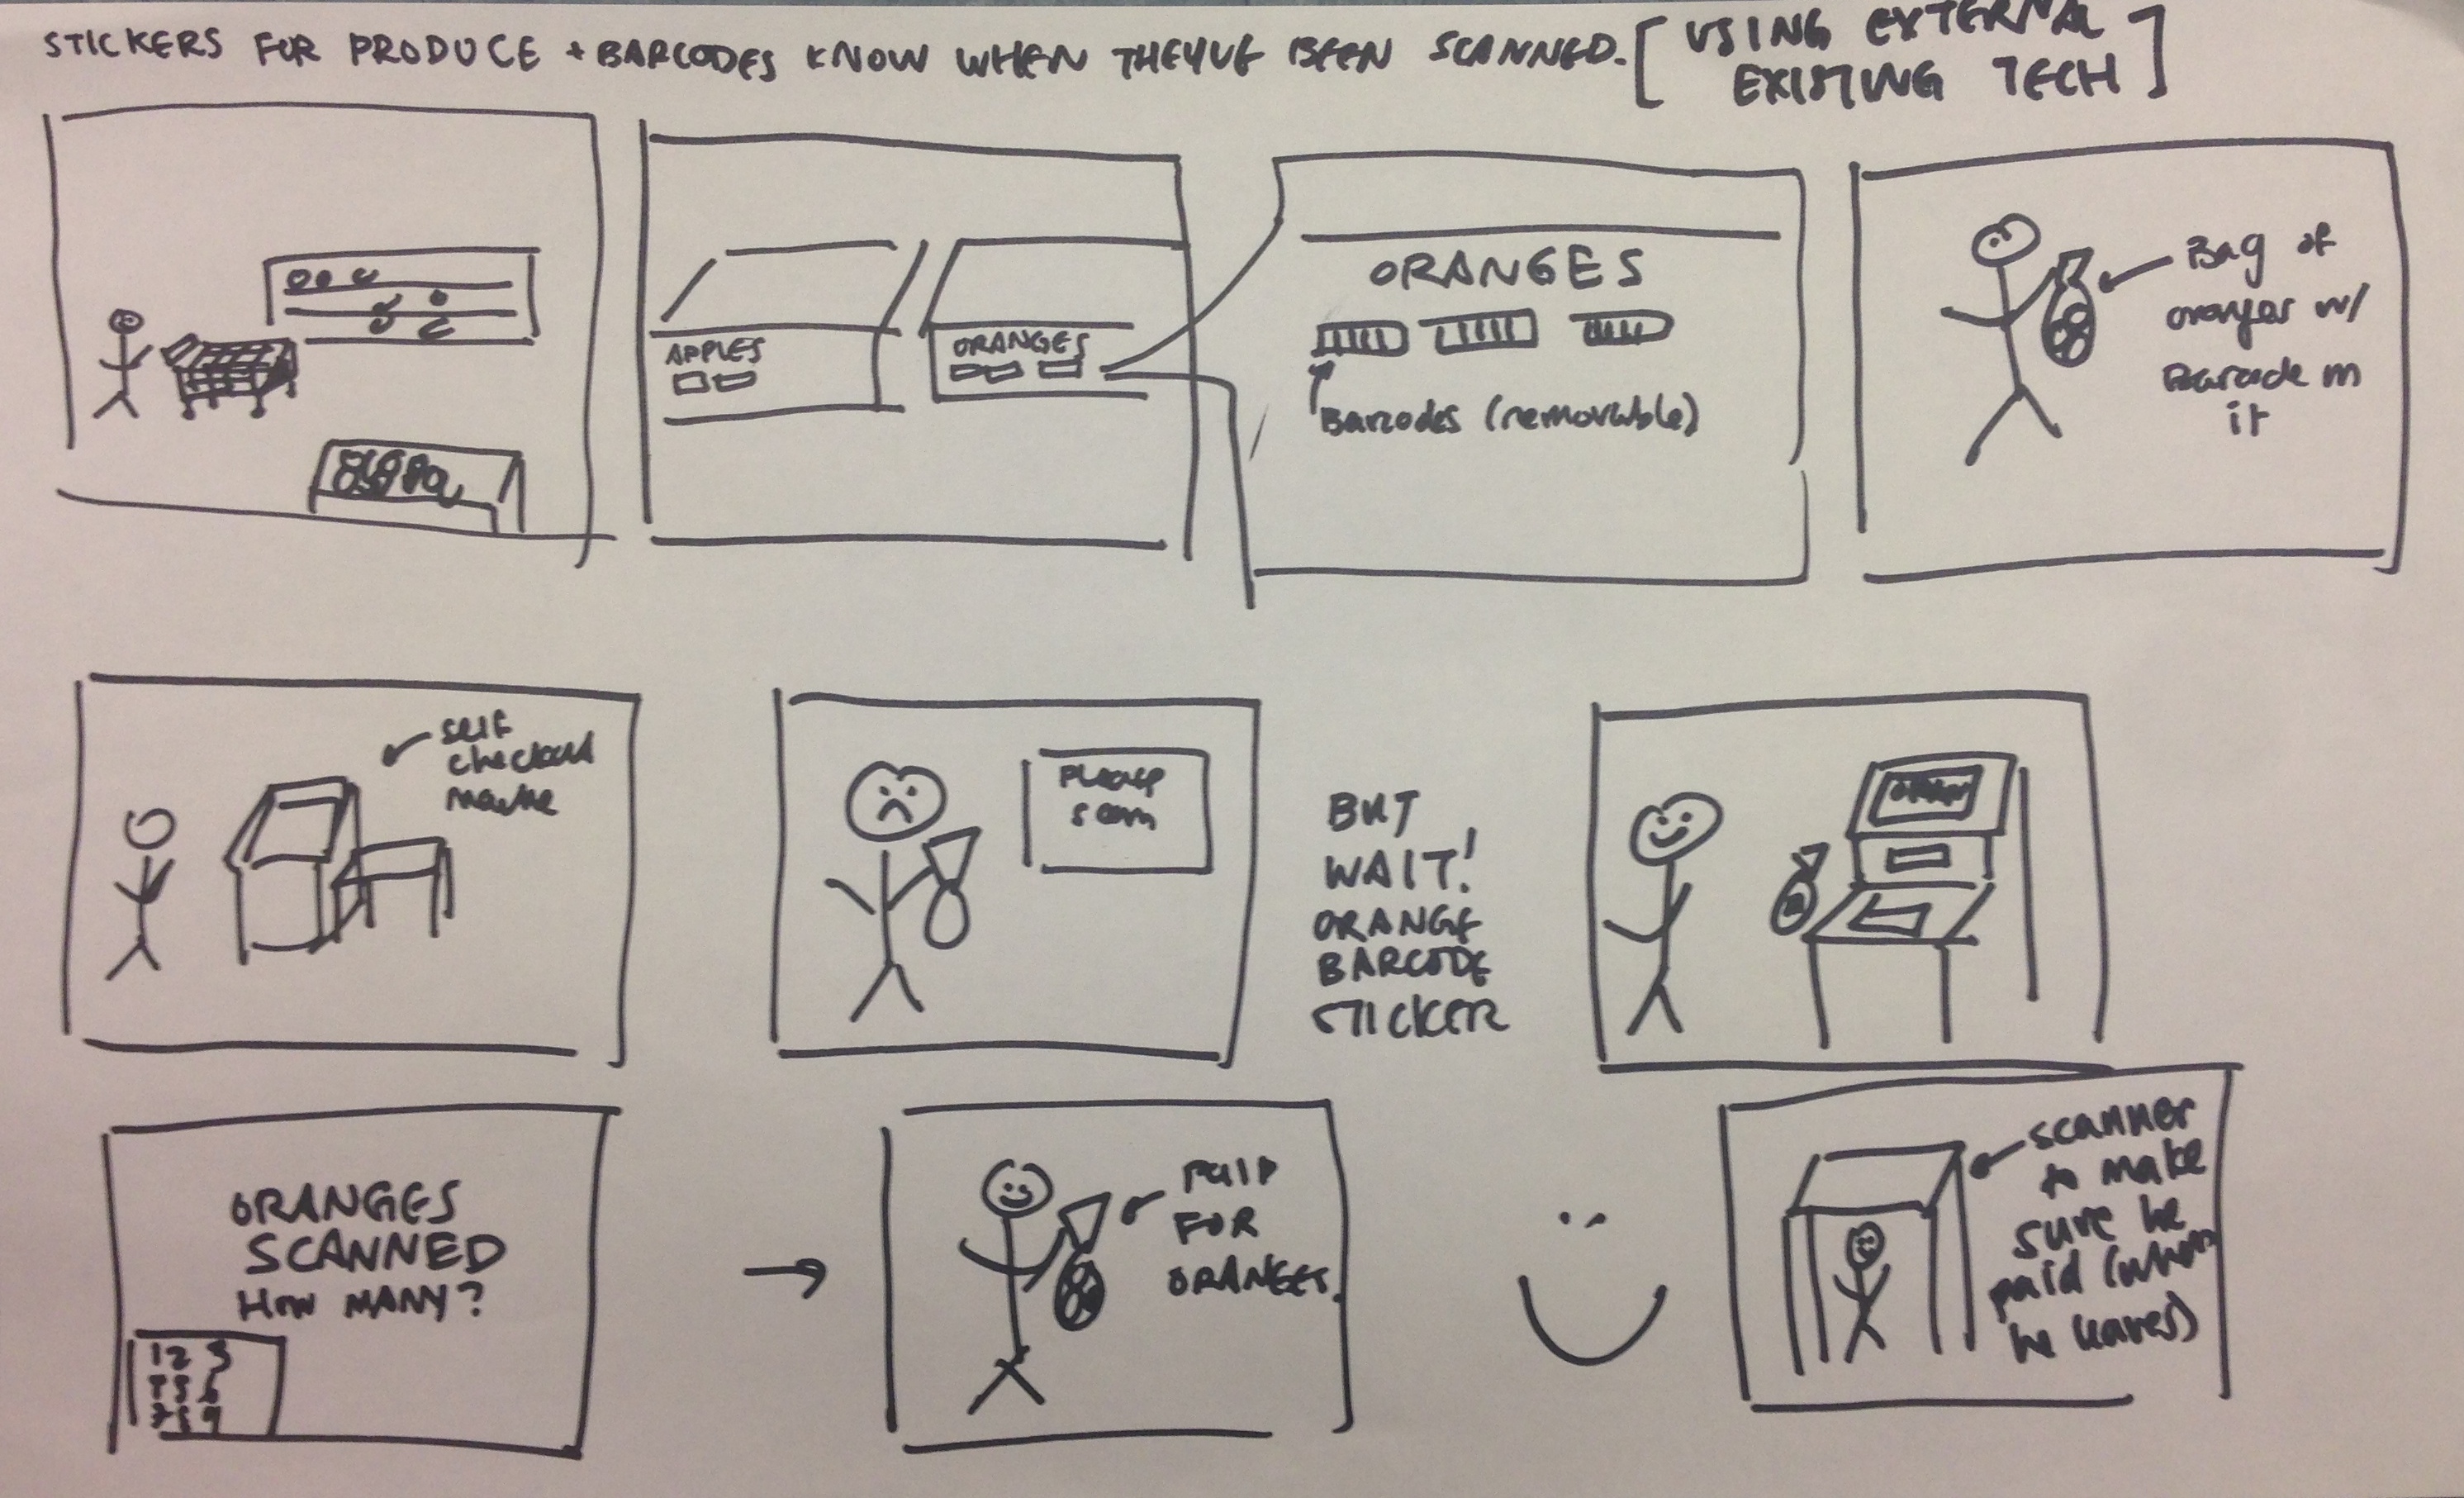 STICKERS FOR PRODUCE + BARCODES KNOW WHEN THEYVE BEEN SCANNED. [USING EXTERNAL
EXISTING TECH]
APPLES
ORANGES
ORANGES
Barcodes (removable)
Bag of
oranges w/
Barcode on
it
self
checkout
machine
Please
scan
BUT
WAIT!
ORANGE
BARCODE
STICKER
ORANGES
SCANNED
HOW MANY?
1 2 3
4 5 6
7 8 9
PAID
FOR
ORANGES.
scanner
to make
sure he
paid (when
he leaves)